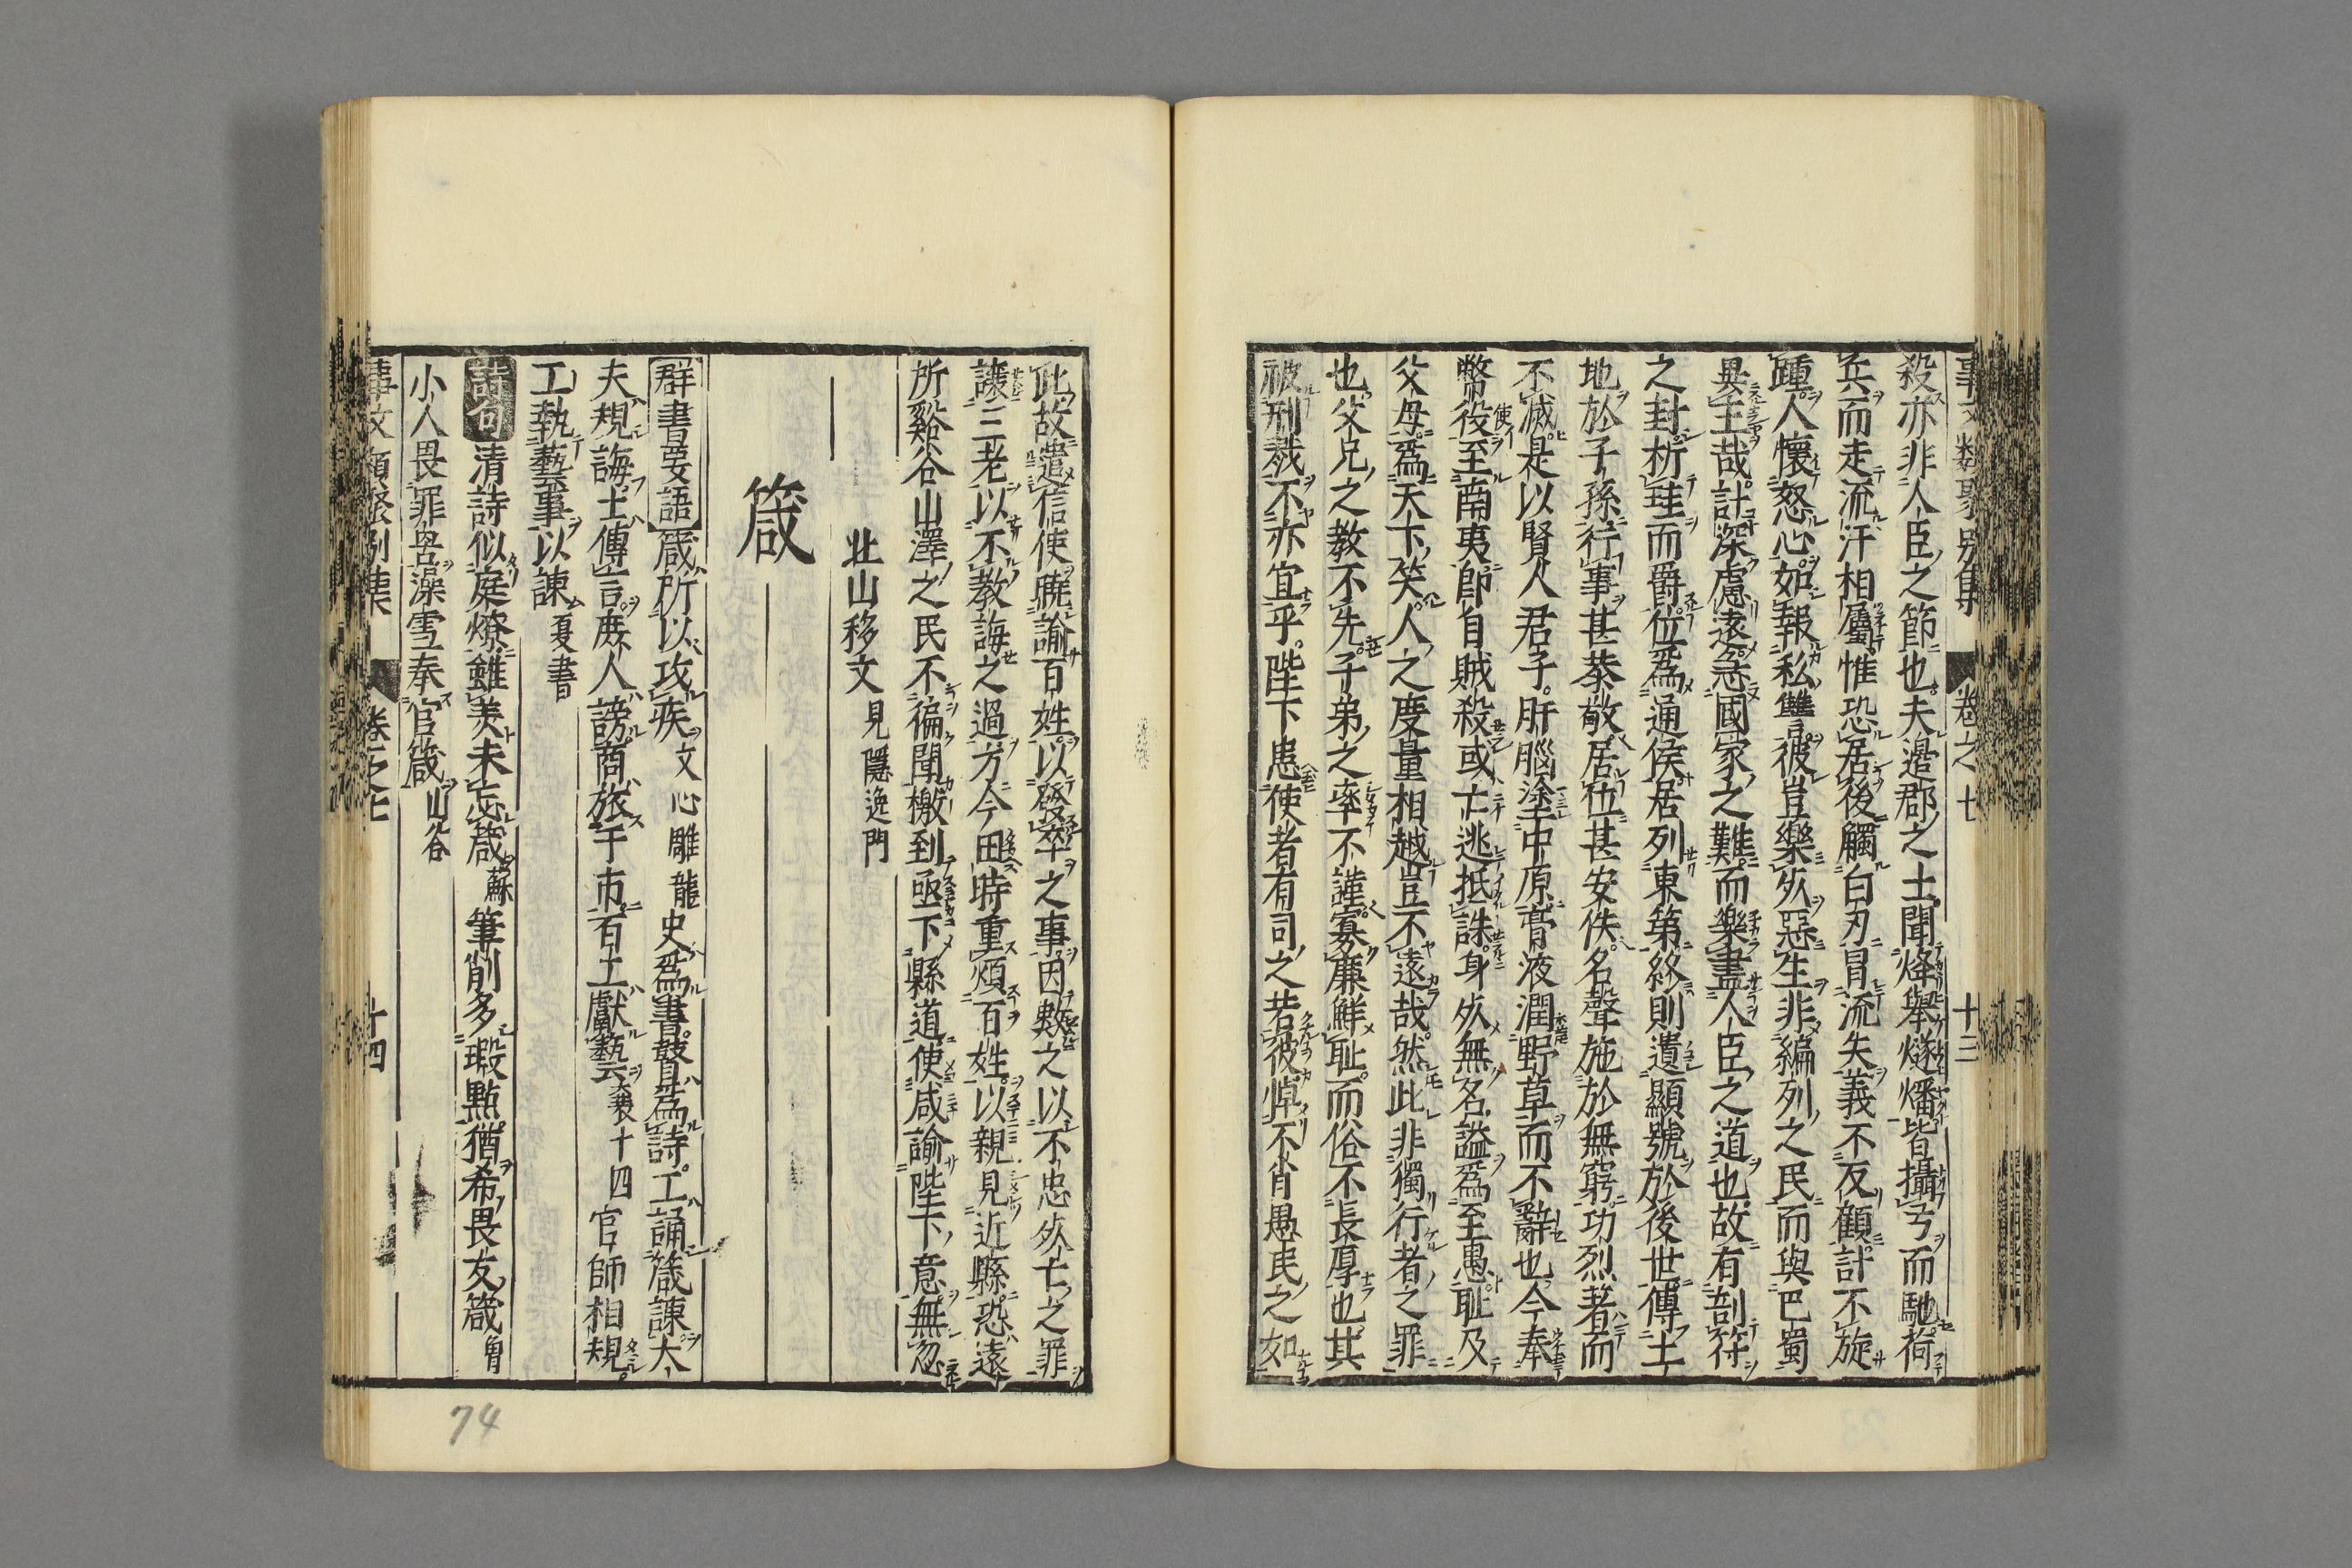 事文類聚別集　卷之七　十三
殺亦非人臣之節也夫邉郡之士聞烽舉燧燔皆攝弓而馳荷
兵而走流汗相屬惟恐居後觸白刃冒流矢義不反顧計不旋
踵人懷怒心如報私讐彼豈樂死惡生非編列之民而與巴蜀
異主哉計深慮遠急國家之難而樂盡人臣之道也故有剖符
之封析珪而爵位爲通侯居列東第終則遺顯號於後世傳土
地於子孫行事甚恭敬居位甚安佚名聲施於無窮功烈著而
不滅是以賢人君子肝腦塗中原膏液潤野草而不辭也今奉
幣役至南夷卽自賊殺或亡逃抵誅身死無名謚爲至愚耻及
父母爲天下笑人之度量相越豈不遠哉然此非獨行者之罪
也父兄之教不先子弟之率不謹寡廉鮮耻而俗不長厚也其
被刑戮不亦宜乎陛下患使者有司之若彼悼不肖愚民之如
此故遣信使曉諭百姓以發卒之事因數之以不忠死亡之罪
讓三老以不教誨之過方今田時重煩百姓以親見近縣恐遠
所谿谷山澤之民不徧聞檄到亟下縣道使咸諭陛下意無忽
北山移文見隱逸門
箴
群書要語 箴所以攻疾文心雕龍 史爲書瞽爲詩工誦箴諫大
夫規誨士傳言庶人謗商旅于市百工獻藝襄十四 官師相規
工執藝事以諫夏書
詩句 清詩似庭燎雖美未忘箴蘇 筆削多瑕點猶希畏友箴眉
小人畏罪咎澡雪奉官箴山谷
事文類聚別集　卷之七　十四
74